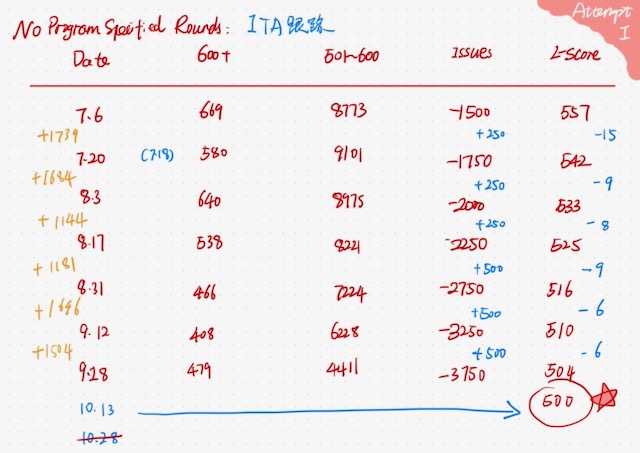 No Program Specified Rounds: ITA跟踪
Attempt I
Date 600+ 501~600 Issues L-Score
7.6 669 8773 -1500 557
+1739 +250 -15
7.20 (7.18) 580 9101 -1750 542
+1684 +250 -9
8.3 640 8975 -2000 533
+1144 +250 -8
8.17 538 8221 -2250 525
+1181 +500 -9
8.31 466 7224 -2750 516
+1696 +500 -6
9.12 408 6228 -3250 510
+1504 +500 -6
9.28 479 4411 -3750 504
10.13 500
10.28